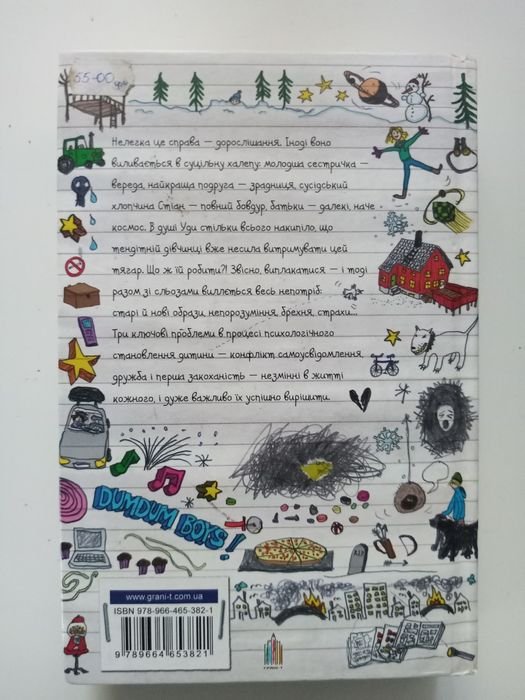 55-00
Нелегка це справа — дорослішання. Іноді воно
виливається в суцільну халепу: молодша сестричка —
вереда, найкраща подруга — зрадниця, сусідський
хлопчина Стіан — повний бовдур, батьки — далекі, наче
космос. В душі Уди стільки всього накипіло, що
тендітній дівчинці вже несила витримувати цей
тягар. Що ж їй робити?! Звісно, виплакатися — і тоді
разом зі сльозами виллється весь непотріб:
старі й нові образи, непорозуміння, брехня, страхи...
Три ключові проблеми в процесі психологічного
становлення дитини — конфлікт самоусвідомлення,
дружба і перша закоханість — незмінні в житті
кожного, і дуже важливо їх успішно вирішити.
DUMDUM BOYS!
RIP
www.grani-t.com.ua
ISBN 978-966-465-382-1
9 789664 653821
ГРАНІ-Т